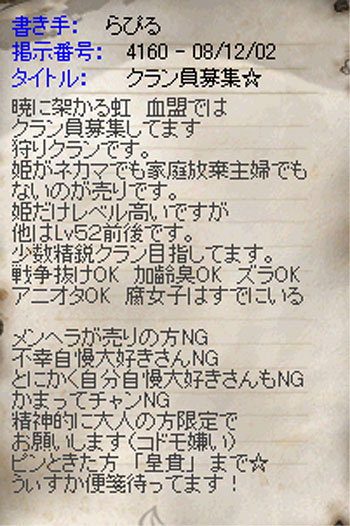 書き手: らぴる
掲示番号: 4160 - 08/12/02
タイトル: クラン員募集☆
暁に架かる虹 血盟では
クラン員募集してます
狩りクランです。
姫がネカマでも家庭放棄主婦でも
ないのが売りです。
姫だけレベル高いですが
他はLv52前後です。
少数精鋭クラン目指してます。
戦争抜けOK 加齢臭OK ズラOK
アニオタOK 腐女子はすでにいる
メンヘラが売りの方NG
不幸自慢大好きさんNG
とにかく自分自慢大好きさんもNG
かまってチャンNG
精神的に大人の方限定で
お願いします(コドモ嫌い)
ピンときた方 「皇貴」 まで☆
ういすか便箋待ってます!